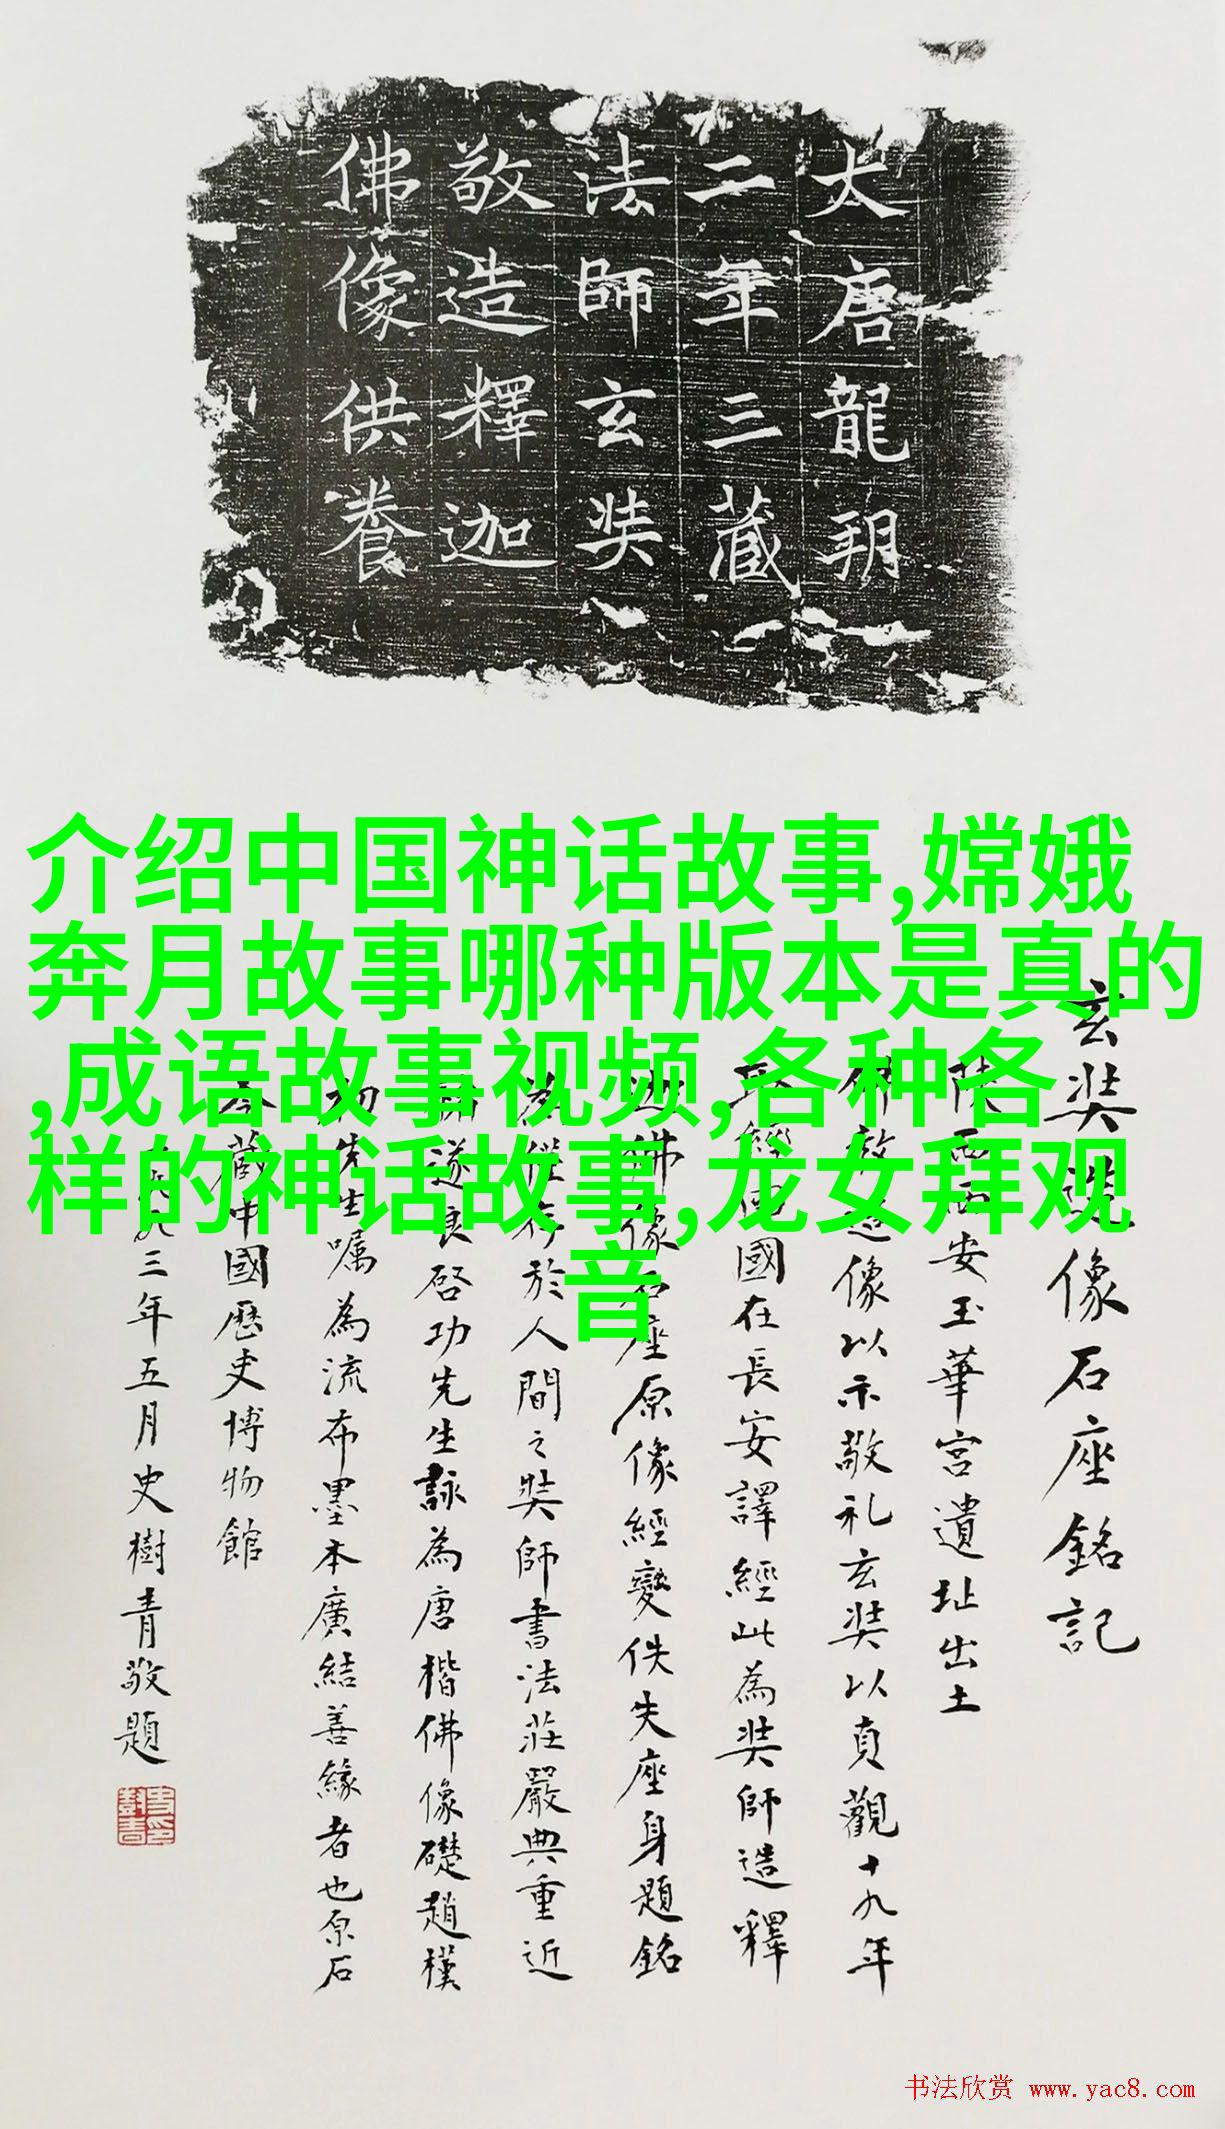 大唐龍朔
二年三藏
法師玄奘
敬造釋迦
佛像供養
介绍中国神话故事,嫦娥
奔月故事哪种版本是真的
,成语故事视频,各种各
样的神话故事,龙女拜观
音
玄奘造像石座銘記
陝西西安玉華宮遺址出土
佛教造像以示敬礼玄奘以貞觀十九年
取經佛國在長安譯經此為奘師造釋
迦佛像石座原像經變佚失座身題銘
於人間之奘師書法莊嚴典重近
遂良啓功先生詠為唐楷佛像礎趙樸
初先生嘱為流布墨本廣結善緣者也原石
今藏中國歷史博物館
一九九三年五月史樹青敬題
书法欣赏 www.yac8.com